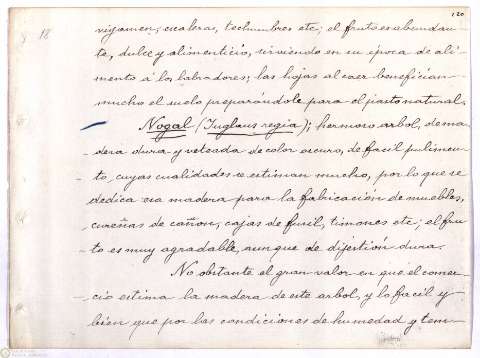 120
vigamen, escaleras, techumbres etc; el fruto es abundan-
te, dulce y alimenticio, sirviendo en su época de ali-
mento á los labradores; las hojas al caer benefician
mucho el suelo preparándole para el pasto natural.
Nogal (Juglans regia); hermoso arbol, de ma-
dera dura y veteada de color oscuro, de facil pulimen-
to, cuyas cualidades se estiman mucho, por lo que se
dedica esa madera para la fabricación de muebles,
cureñas de cañon, cajas de fusil, timones etc; el fru-
to es muy agradable, aunque de digestión dura.
No obstante el gran valor en que el comer-
cio estima la madera de este arbol, y lo facil y
bien que por las condiciones de humedad y tem-